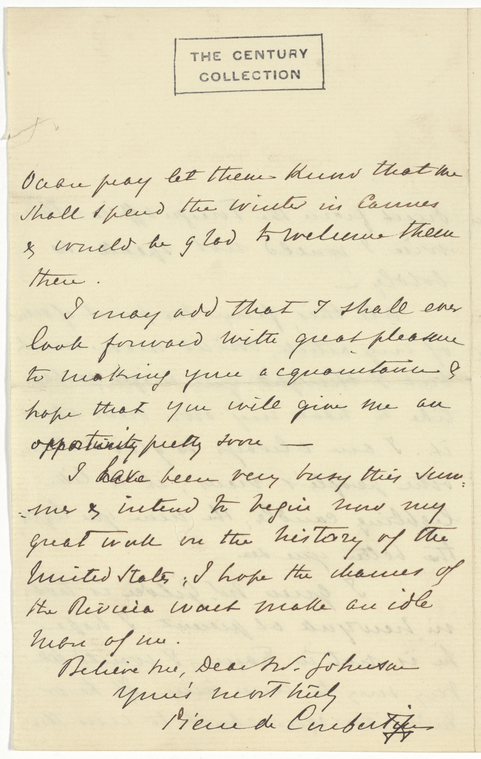 THE CENTURY
COLLECTION
Ocean pray let them know that we
shall spend the winter in Cannes
& would be glad to welcome them
there.
I may add that I shall ever
look forward with great pleasure
to making your acquaintance &
hope that you will give me an
opportunity pretty soon —
I have been very busy this sum-
-mer & intend to begin now my
great work on the history of the
United States; I hope the charms of
the Riviera wont make an idle
man of me.
Believe me, Dear Mr. Johnson
Yours most truly
Pierre de Coubertin